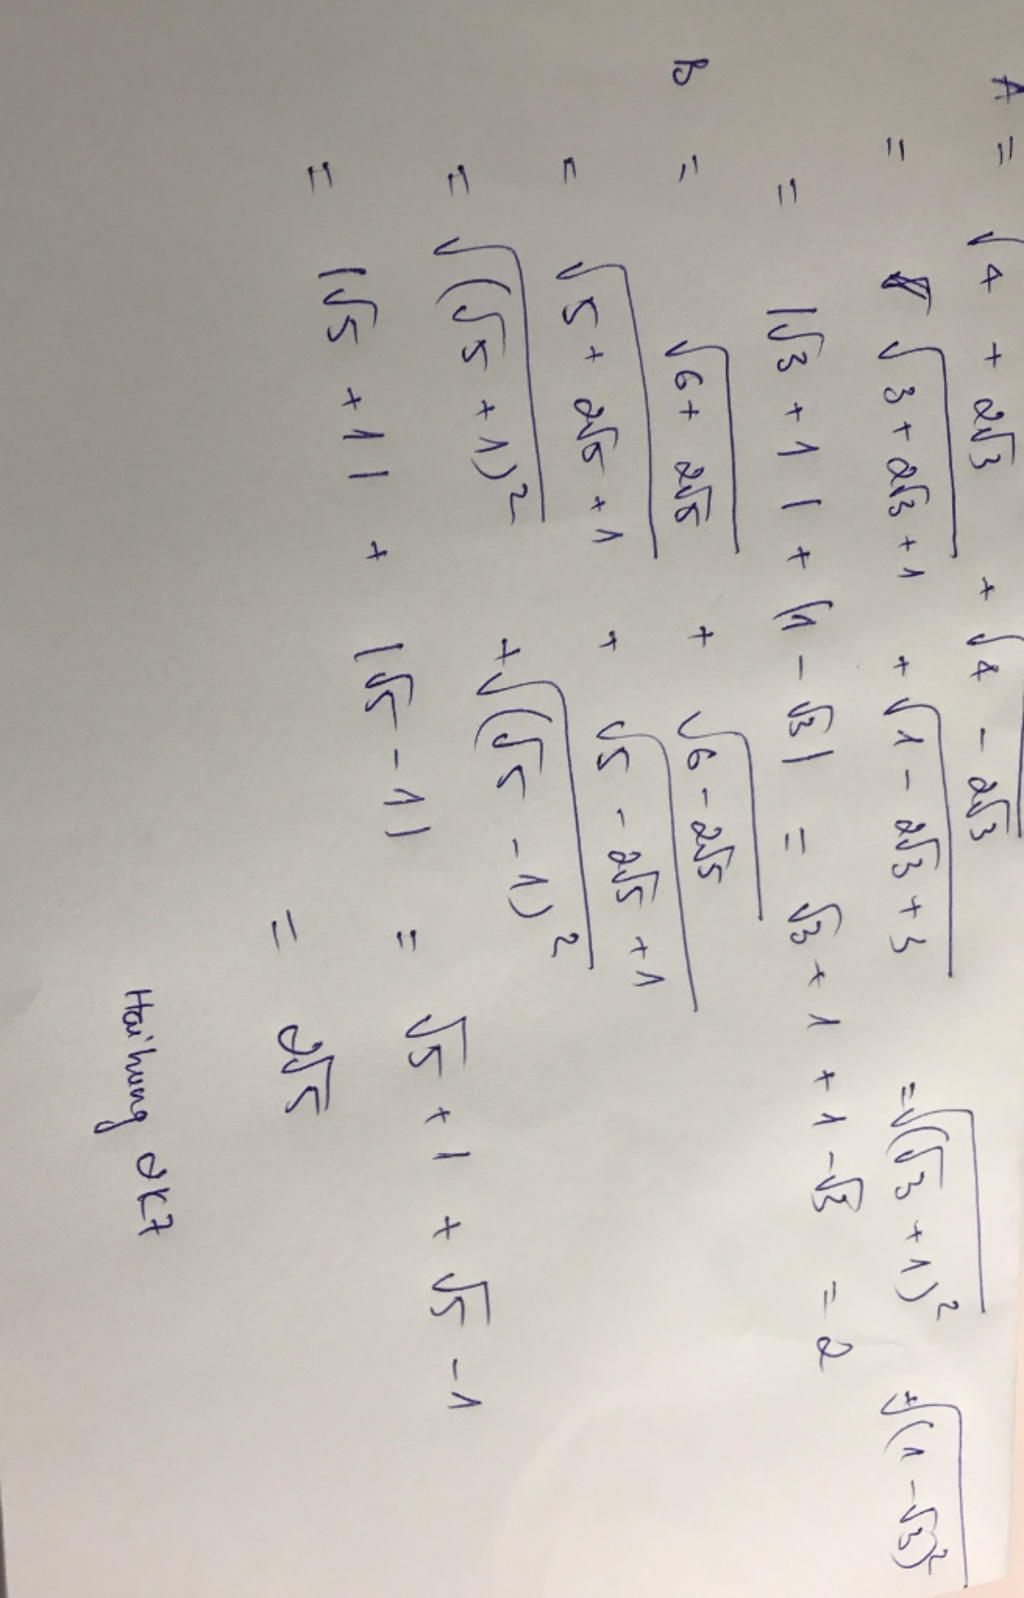 A = √4 + 2√3 + √4 - 2√3
= √3 + 2√3 + 1 + √1 - 2√3 + 3 = √(√3 + 1)² + √(1 - √3)²
= |√3 + 1| + |1 - √3| = √3 + 1 + 1 - √3 = 2
B = √6 + 2√5 + √6 - 2√5
= √5 + 2√5 + 1 + √5 - 2√5 + 1
= √(√5 + 1)² + √(√5 - 1)²
= |√5 + 1| + |√5 - 1| = √5 + 1 + √5 - 1
= 2√5
Haihung 2k7